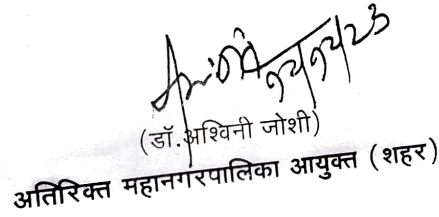 (डॉ.अश्विनी जोशी)
अतिरिक्त महानगरपालिका आयुक्त (शहर)